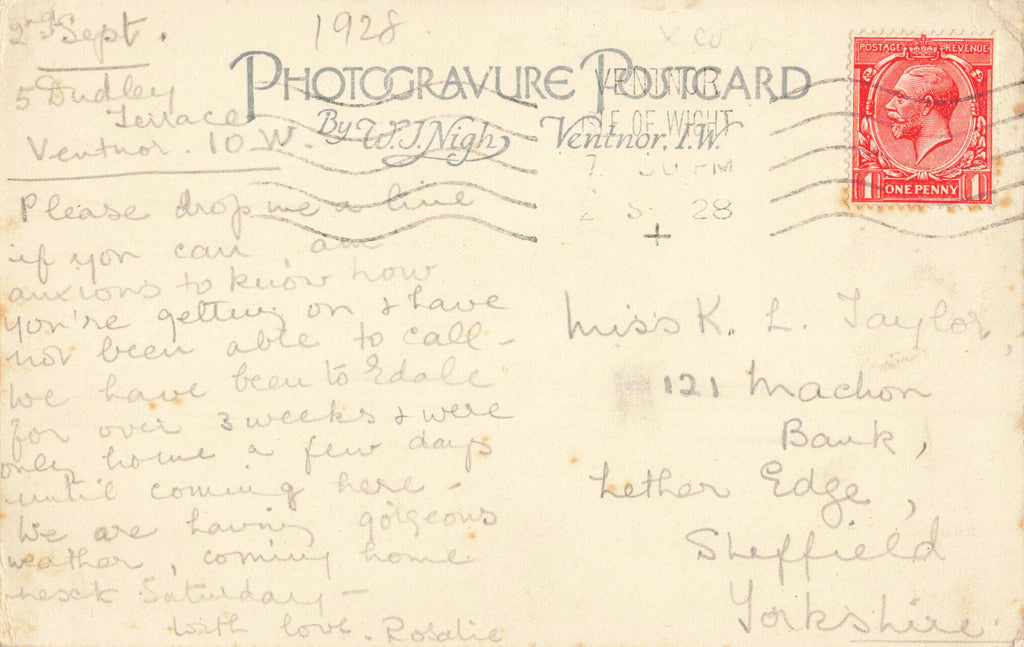 2nd Sept. 1928
5 Dudley
Terrace
Ventnor. IOW.
Please drop me a line
if you can, am
anxious to know how
you're getting on & have
not been able to call -
We have been to Edale
for over 3 weeks & were
only home a few days
until coming here -
We are having gorgeous
weather, coming home
next Saturday -
With love. Rosalie
PHOTOGRAVURE POSTCARD
By W.J. Nigh, Ventnor, I.W.
VENTNOR
ISLE OF WIGHT
7. 30 PM
2 S 28
POSTAGE REVENUE
1 ONE PENNY 1
Miss K. L. Taylor,
121 Machon
Bank,
Nether Edge,
Sheffield
Yorkshire.